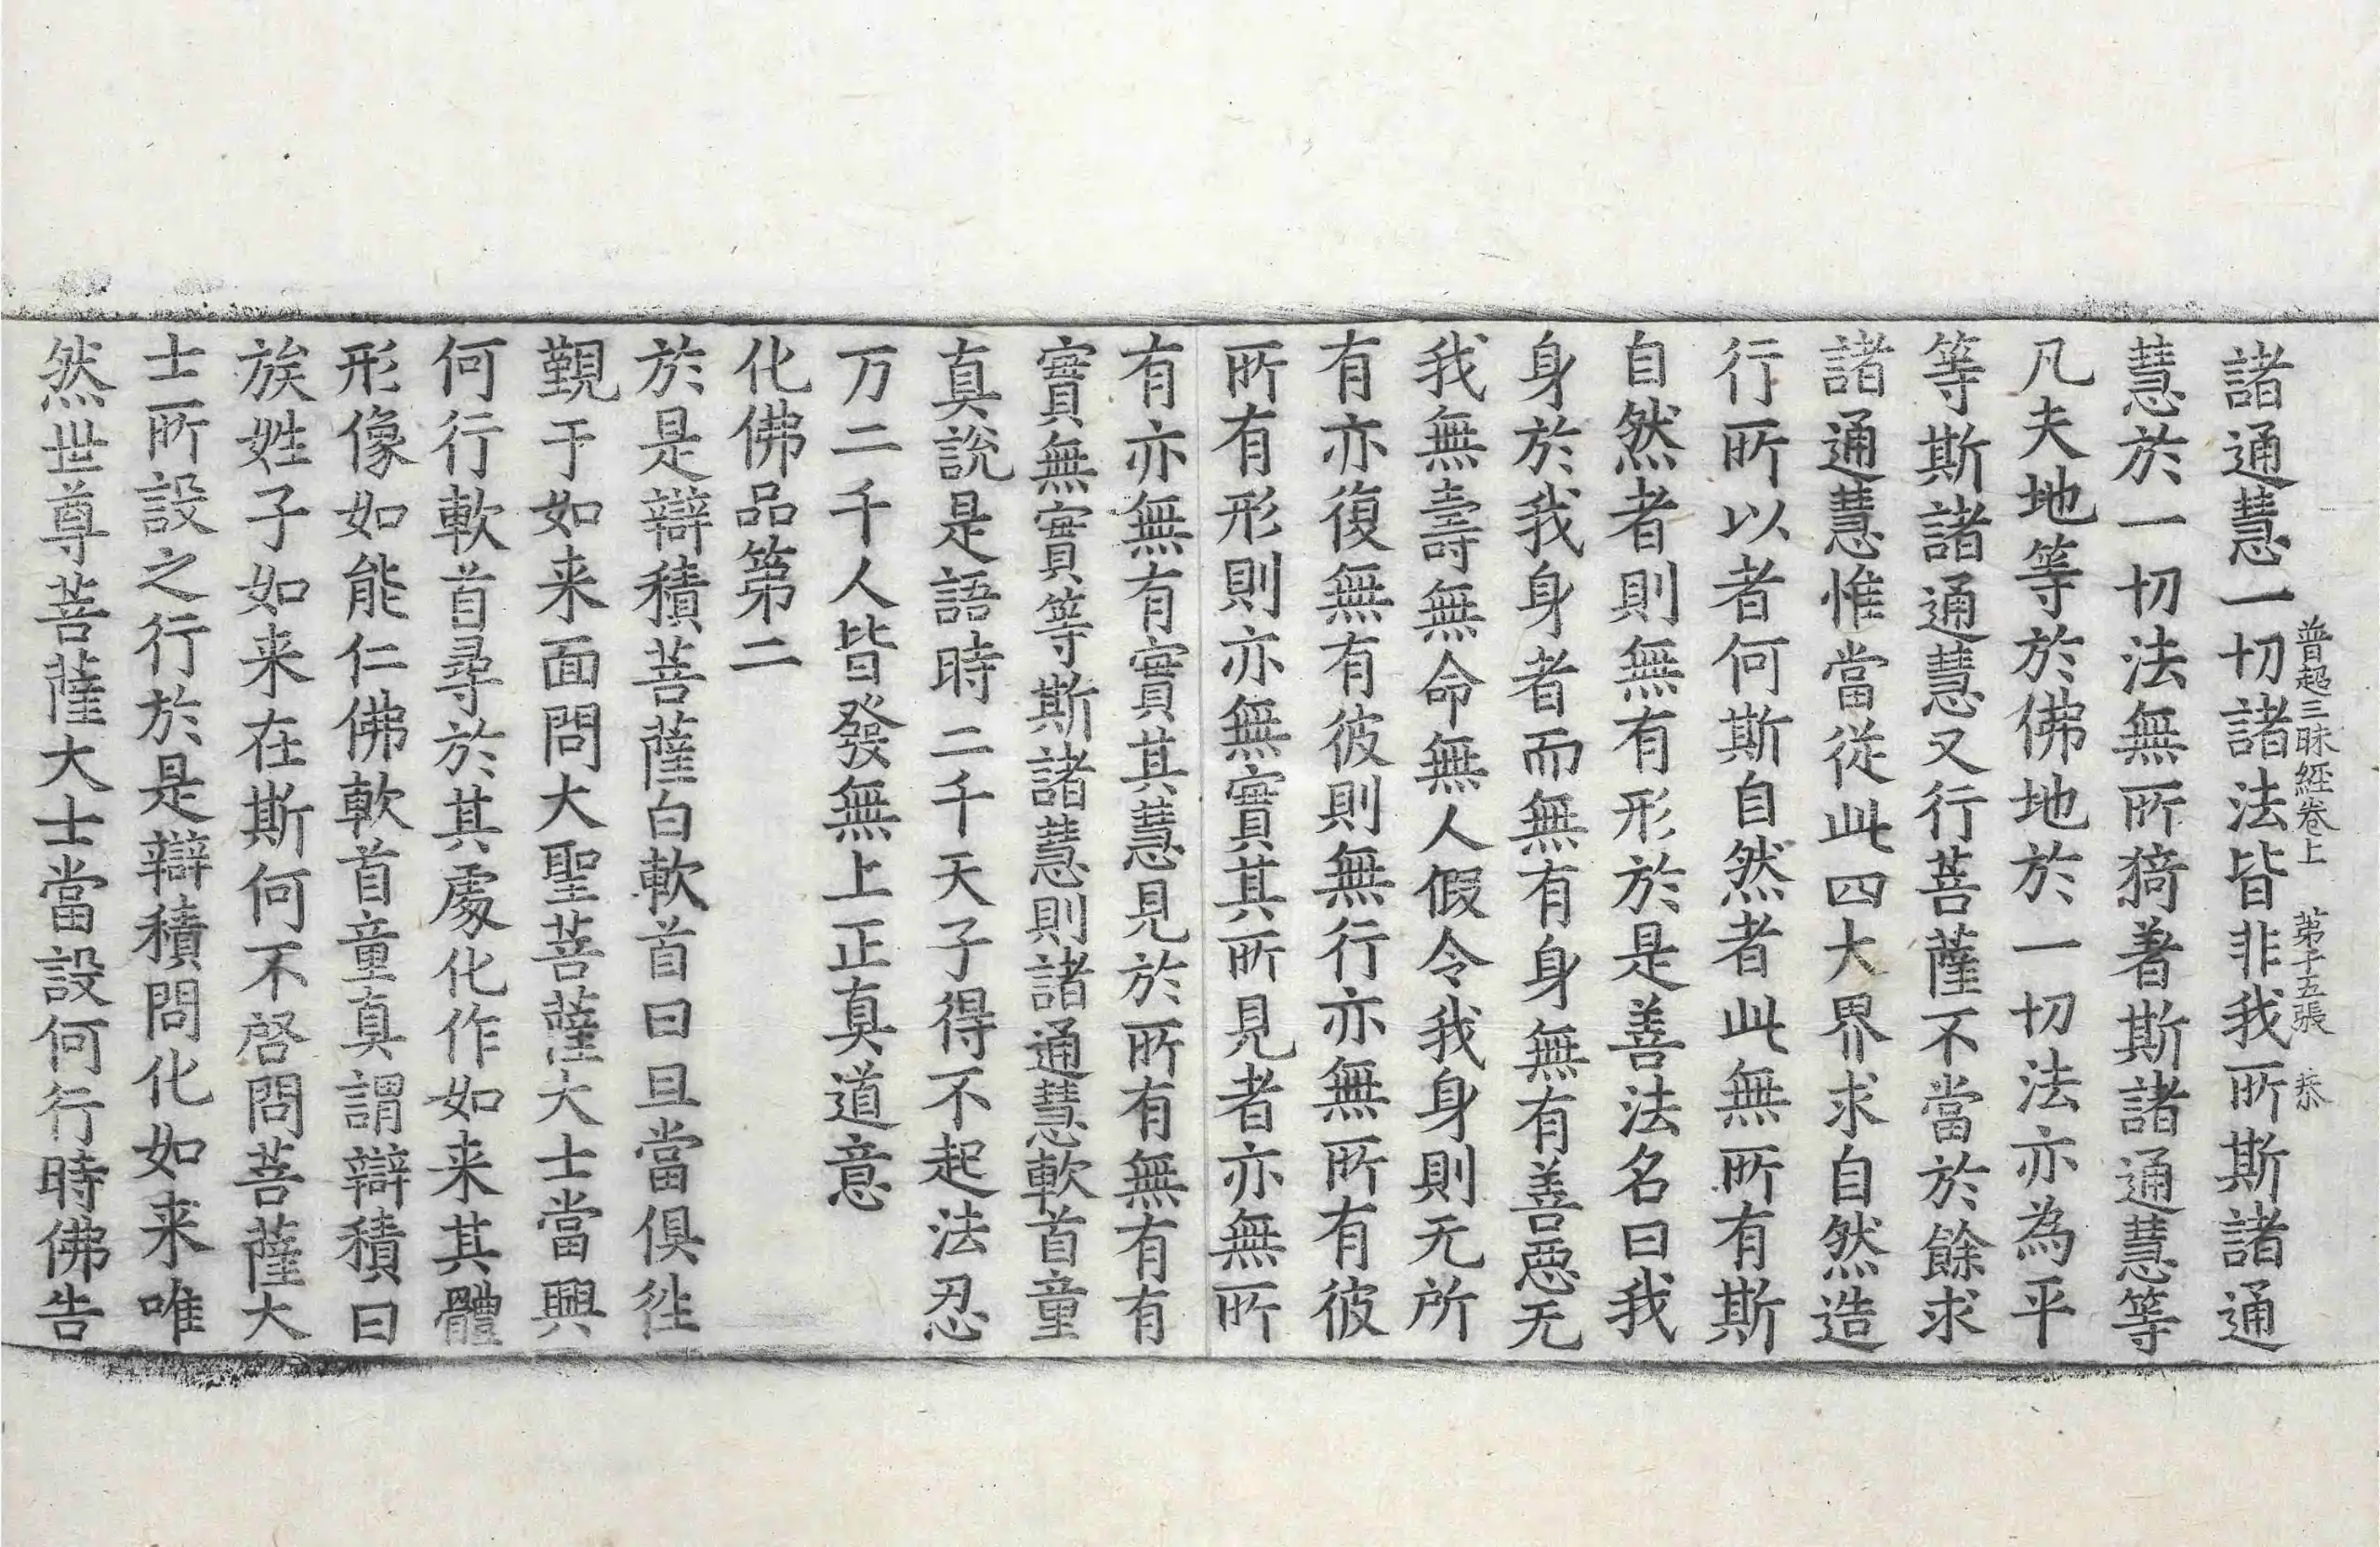 普超三昧經卷上 第十五張 恭
諸通慧一切諸法皆非我所斯諸通
慧於一切法無所猗著斯諸通慧等
凡夫地等於佛地於一切法亦為平
等斯諸通慧又行菩薩不當於餘求
諸通慧惟當從此四大界求自然造
行所以者何斯自然者此無所有斯
自然者則無有形於是善法名曰我
身於我身者而無有身無有善惡无
我無壽無命無人假令我身則无所
有亦復無有彼則無行亦無所有彼
所有形則亦無實其所見者亦無所
有亦無有實其慧見於所有無有有
實無實等斯諸慧則諸通慧軟首童
真說是語時二千天子得不起法忍
万二千人皆發無上正真道意
化佛品第二
於是辯積菩薩白軟首曰且當俱往
覲于如来面問大聖菩薩大士當興
何行軟首尋於其處化作如来其體
形像如能仁佛軟首童真謂辯積曰
族姓子如来在斯何不啓問菩薩大
士所設之行於是辯積問化如来唯
然世尊菩薩大士當設何行時佛告